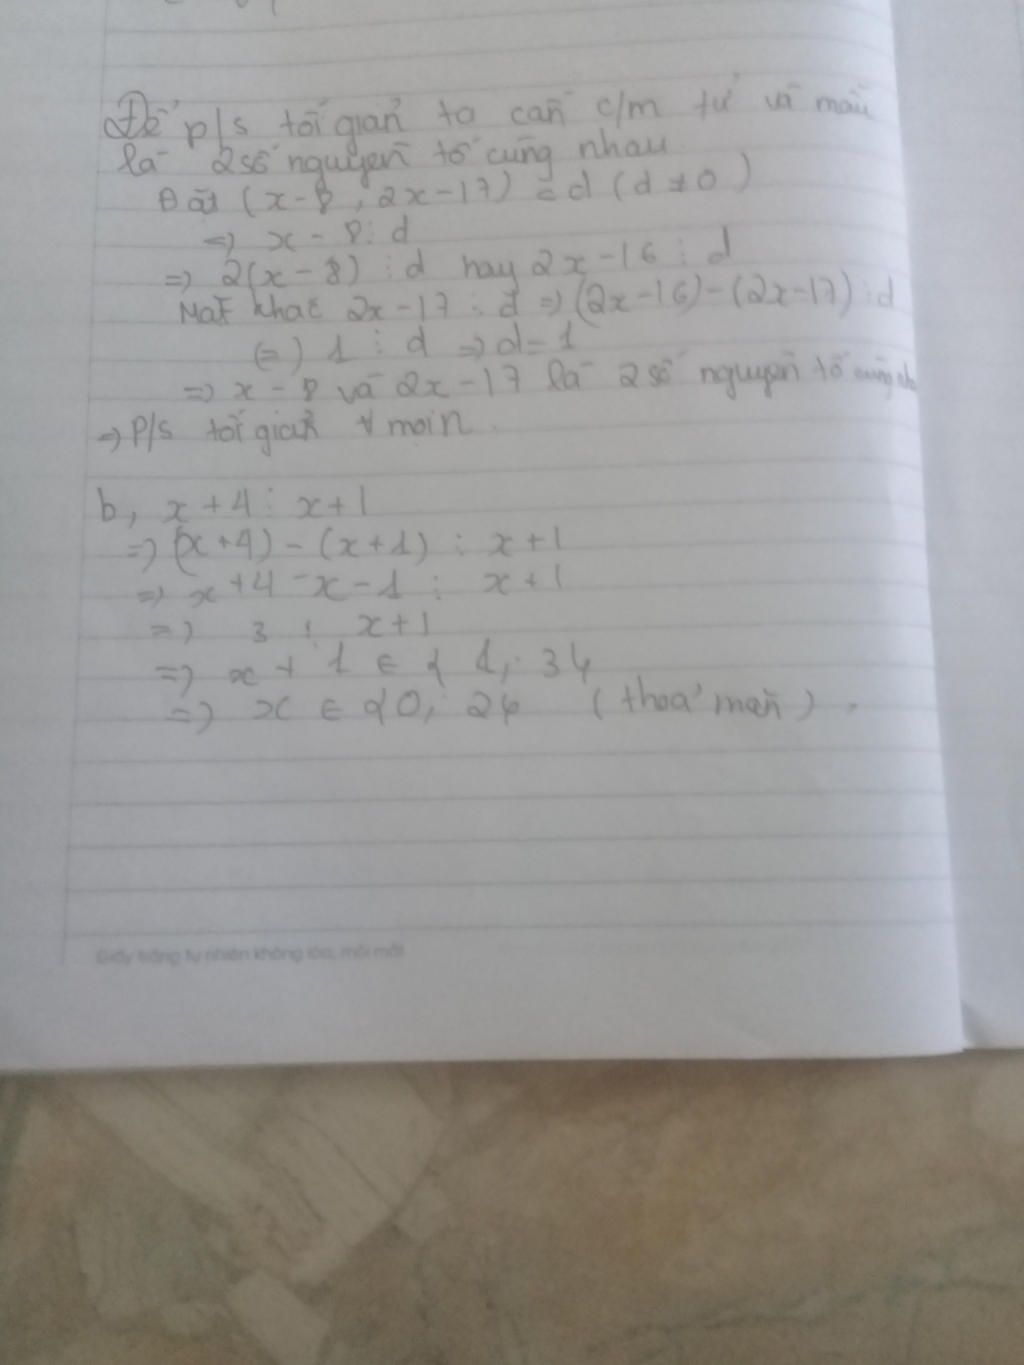 Để p/s tối giản ta cần c/m tử và mẫu
là 2 số nguyên tố cùng nhau
Đặt (x-8, 2x-17) = d (d≠0)
=> x - 8 ⋮ d
=> 2(x-8) ⋮ d hay 2x-16 ⋮ d
Mặt khác 2x-17 ⋮ d => (2x-16)-(2x-17) ⋮ d
(=) 1 ⋮ d => d=1
=> x - 8 và 2x-17 là 2 số nguyên tố cùng nhau
=> P/s tối giản ∀ mọi n.
b, x+4 ⋮ x+1
=> (x+4) - (x+1) ⋮ x+1
=> x+4-x-1 ⋮ x+1
=> 3 ⋮ x+1
=> x + 1 ∈ { 1; 3}
=> x ∈ {0; 2} (thoả mãn).
Giấy trắng tự nhiên không lóa, mỏi mắt